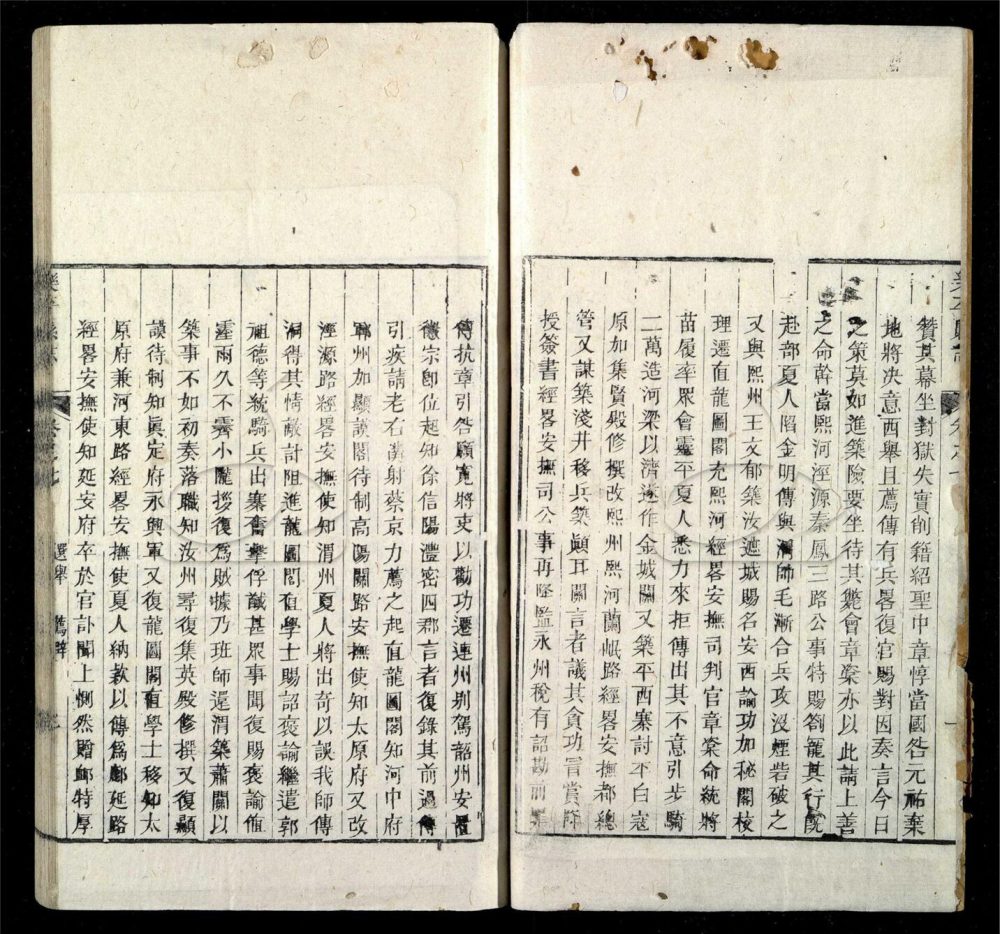 贊其幕坐對獄失實削籍紹聖中章惇當國咎元祐棄
地將决意西舉且薦傳有兵畧復官賜對因奏言今日
之策莫如進築險要坐待其斃會章楶亦以此請上善
之命幹當熙河涇源秦鳳三路公事特賜劄龍其行既
赴部夏人陷金明傳與渭師毛漸合兵攻沒煙砦破之
又與熙州王文郁築汝遮城賜名安西論功加秘閣校
理遷直龍圖閣充熙河經畧安撫司判官章楶命統將
苗履率眾會靈平夏人悉力來拒傳出其不意引步騎
二萬造河梁以濟遂作金城關又築平西寨討不白寇
原加集賢殿修撰改熙州熙河蘭岷路經畧安撫都總
管又謀築淺井移兵築顛耳關言者議其貪功冒賞降
授簽書經畧安撫司公事再降監永州稅有詔勘前築
傳抗章引咎願寬將吏以勸功遷連州别駕韶州安置
徽宗卽位起知徐信陽澧密四郡言者復錄其前過傳
引疾請老右僕射蔡京力薦之起直龍圖閣知河中府
鄆州加顯謨閣待制高陽關路安撫使知太原府又改
涇源路經畧安撫使知渭州夏人將出奇以誤我師傳
洞得其情敵計阻進龍圖閣直學士賜詔褒諭繼遣郭
祖德等統騎兵出寨奮擊俘馘甚眾事聞復賜褒諭值
霪雨久不霽小隴拶復爲賊據乃班師還渭築蕭關以
築事不如初奏落職知汝州尋復集英殿修撰又復顯
謨待制知眞定府永興軍又復龍圖閣直學士移知太
原府兼河東路經畧安撫使夏人納款以傳爲鄜延路
經畧安撫使知延安府卒於官訃聞上惻然贈䘏特厚
選舉 薦辟